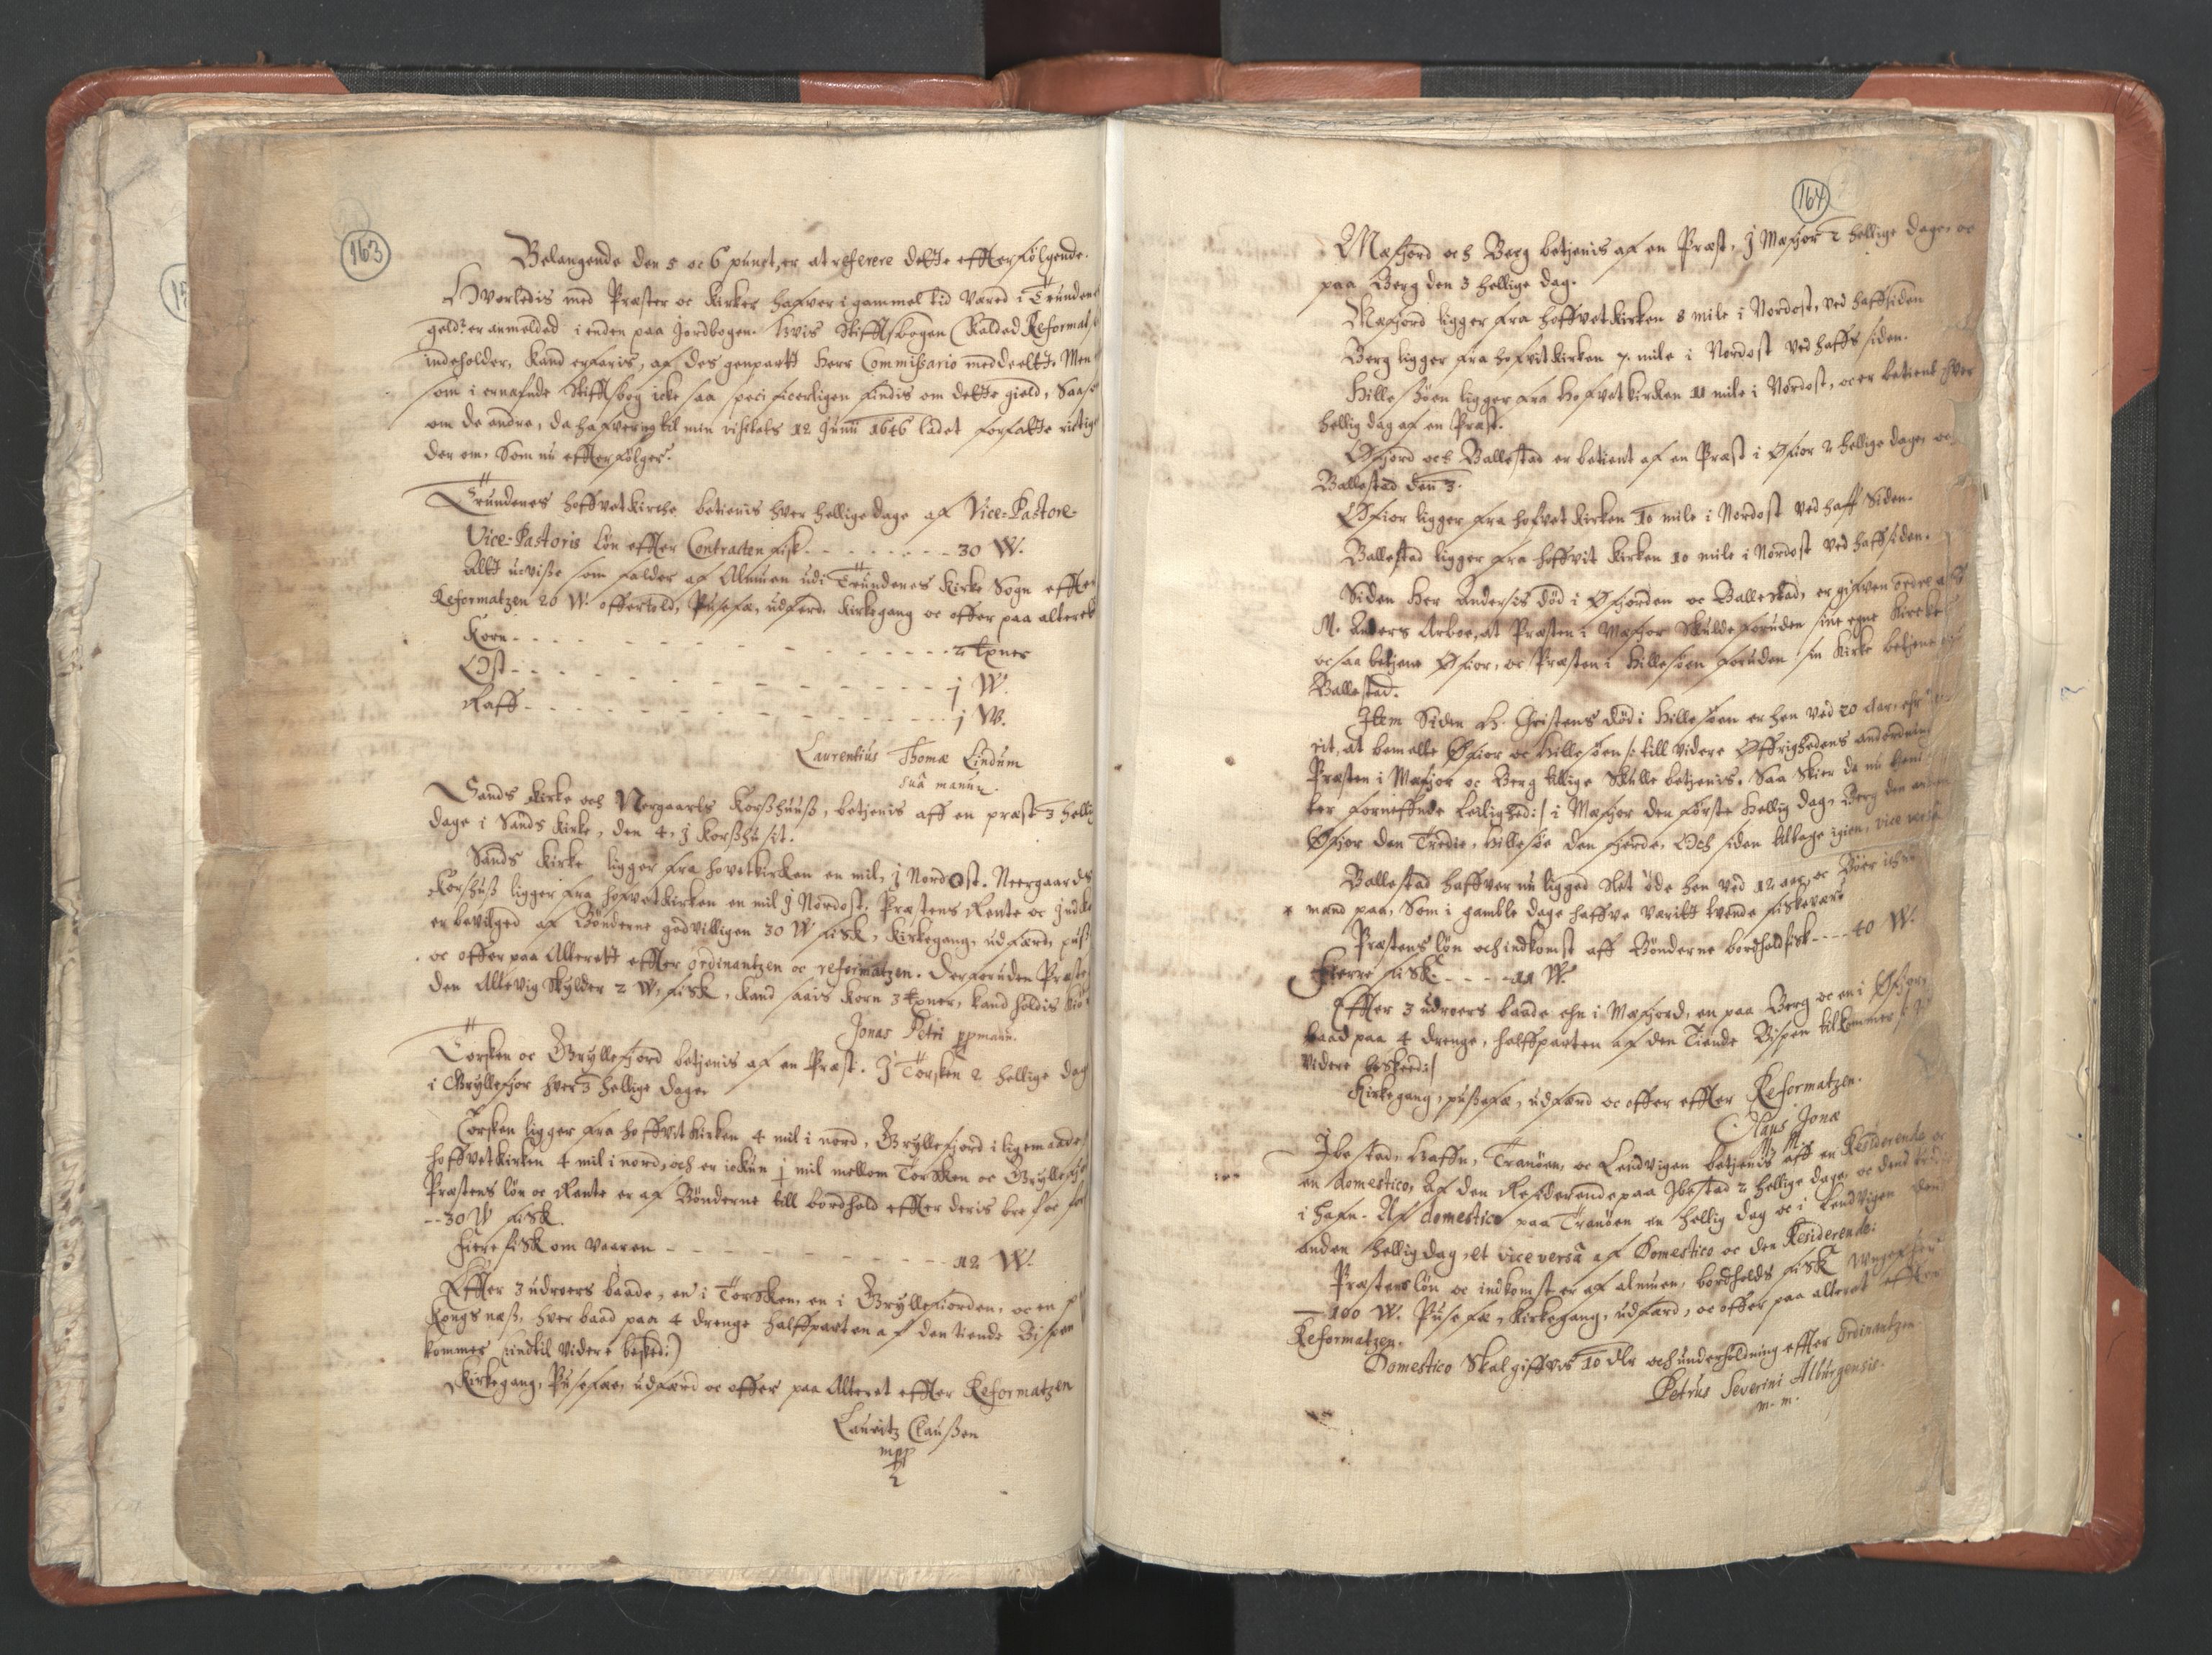 163
Belangende den 5 oc 6 punct, er at referere dette effterfølgende.
Hvorledis med Præster oc Kirker hafver i gammel tid vared i Trunden
geld: er anmelded i enden paa Jordbogen. Hvis Stifftsbogen (Kalded Reformatz
indeholder, Kand erfaris, af des genpartt Herr Commissario meddeeltt. Men
som i ernæfnde Stifftsbog icke saa specificerligen findis om dette gield, Saas
om de andre, da hafver ieg til min visitats 12 Junii 1646 ladet forfatte rictig
der om, Som nu effterfølger.
Trundenes hoffvetkirche betienis hver hellige dage af Vice-Pastore
Vice-Pastoris løn effter Contracten fisk - - - - - - - 30 W.
Altt uvisse som falder af Almuen udi Trundenes Kirke Sogn effter
Reformatzen 20 W. offertold, Pusefæ, udferd. Kirkegang oc offer paa alteret
Korn - - - - - - - - - - - - - 2 tpner
Ost - - - - - - - - - - - - - j W.
Raff - - - - - - - - - - - - - j W.
Laurentius Thomæ Lindum
suâ manu
Sands Kirke och Nergaarts Korsshuuss, betienis aff en præst 3 hellig
dage i Sands Kirke, den 4, j Korsshusit.
Sands Kirke ligger fra hovetkirken en mil, j Nordost. Neergaards
Korshuss ligger fra hofvetkirken en mil j Nordost. Præstens Rente oc Indk
er bevilged af Bønderne godvilligen 30 W fisk, Kirkegang, udfærd, puss
oc offer paa Alterett effter ordinantzen oc reformatzen. Der foruden Præste
den Altevig skylder 2 W. fisk, kand saais korn 3 tpner, kand holdis
Jonas Petri ppmann.
Torsken oc Gryllefiord betienis af en Præst. J Torsken 2 hellige dag
i Gryllefior hver 3 hellige dage.
Torsken ligger fra hoffvitkirken 4 mil i nord, Gryllefiord i ligemaade
hoffvetkirken 4 mil i nord, och er ickun j mil mellom Torsken oc Gryllefi
Præstens løn oc Rente er af Bønderne till bordhold effter deris bref oc
-- 30 W fisk.
Fierefisk om vaaren - - - - - - - - - - 12 W.
Effter 3 udroers baade, en i Torsken, en i Gryllefiorden, oc en p
Kongsnæss, hver baad paa 4 drenge halffparten af den tiende Bispen
kommer (indtil videre besked:)
Kirkegang, Pusefæe, udfærd oc offer paa Alteret effter Reformatzen
Lauritz Claussen
mpp
164
Mefiord och Berg betienis af en Præst, j Mæfior 2 hellige dage, oc
paa Berg den 3 hellige dag.
Mæfiord ligger fra hoffvetkirken 8 mile i Nordost, ved haffsiden
Berg ligger fra hofvitkirken 7. mile i Nordost ved haffs siden.
Hillesøen ligger fra Hofvetkirken 11 mile i Nordost, oc er betient hver
hellig dag af en Præst.
Øfiord och Ballestad er betient af en Præst i Øfior 2 hellige dage, oc
Ballestad den 3.
Øfior ligger fra hofvetkirken 10 mile i Nordost ved haff Siden.
Ballestad ligger fra hoffvit kirken 10 mile i Nordost ved haffsiden.
Siden Her Andersis død i Øfiorden oc Ballestad, er gifven ordre
M. Anders Arboe, at Præsten i Mæfior skulde foruden sine egne Kircker
oc saa betiene Øfior, oc Præsten i Hillesøen foruden sin Kirke betiene
Ballestad.
Item Siden H. Christens død i Hillesøen er hen ved 20 Aar,
rit, at bemelte Øfior oc Hillesøen till videre Øffrighedens anordning
Præsten i Mæfior oc Berg tillige Skulle betienis. Saa Skier da nu
ter fornæffnde Leilighed:/ i Mæfior den første Hellig dag, Berg den anden
Øfior den Tredie, Hillesøe den fierde, Och siden tilbage igien, vice versa
Ballestad haffver nu ligged slet øde hen ved 12 aar, oc Boer
mand paa, Som i gamble dage haffve varitt tvende fiskevære
Præstens løn och indkomst aff Bønderne bordholdfisk - - - 40 W.
Fierre fisk - - - - 11 W.
Effter 3 udroers baade ehn i Mæfiord, en paa Berg oc en i Øfior,
baad paa 4 drenge, halffparten af den Tiende Bispen tilkommer
videre beskeed:/
Kirkegang, pussefæ, udfærd oc offer effter Reformatzen.
Claus Jonæ
M M
Ibestad, Haffn, Tranøen, oc Lendvigen betienis aff en Residerende oc
en domestico, Af den Residerende paa Ibestad 2 hellige dage, oc dend tredie
i Hafn. Af domestico paa Tranøen en hellig dag oc i Lendvigen den
anden hellig dag, et vice versâ af Domestico oc den Residerende:
Præstens løn oc indkomst er af almuen, bordholds fisk
-- 100 W. Pusefæ, Kirkegang, udfærd, oc offer paa alteret effter
Reformatzen.
Domestico skal giffvis 10 dlr och underholdning effter Ordinantzen.
Petrus Severini Alburgensis.
m. m.